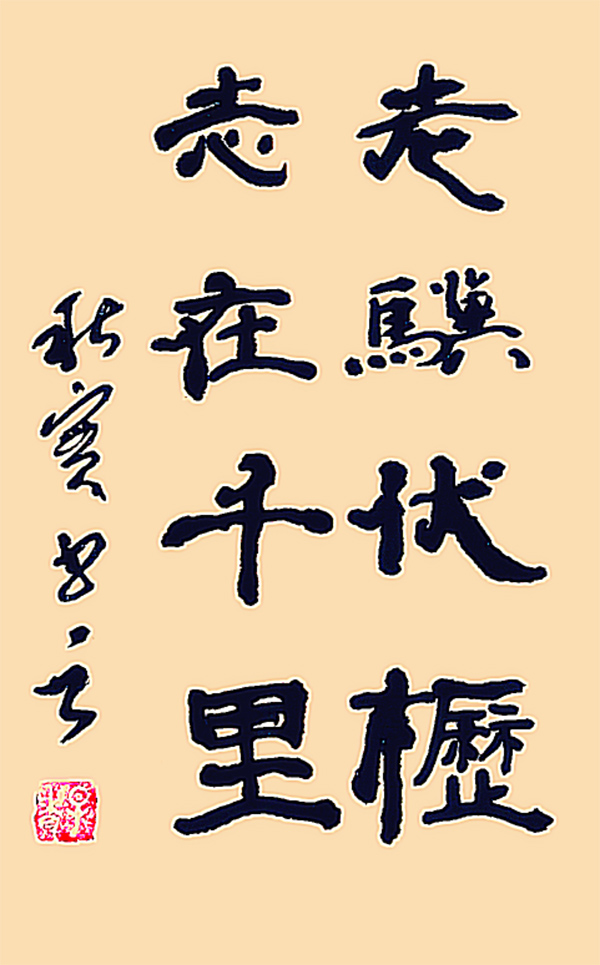 老驥伏櫪
志在千里
秋實书之